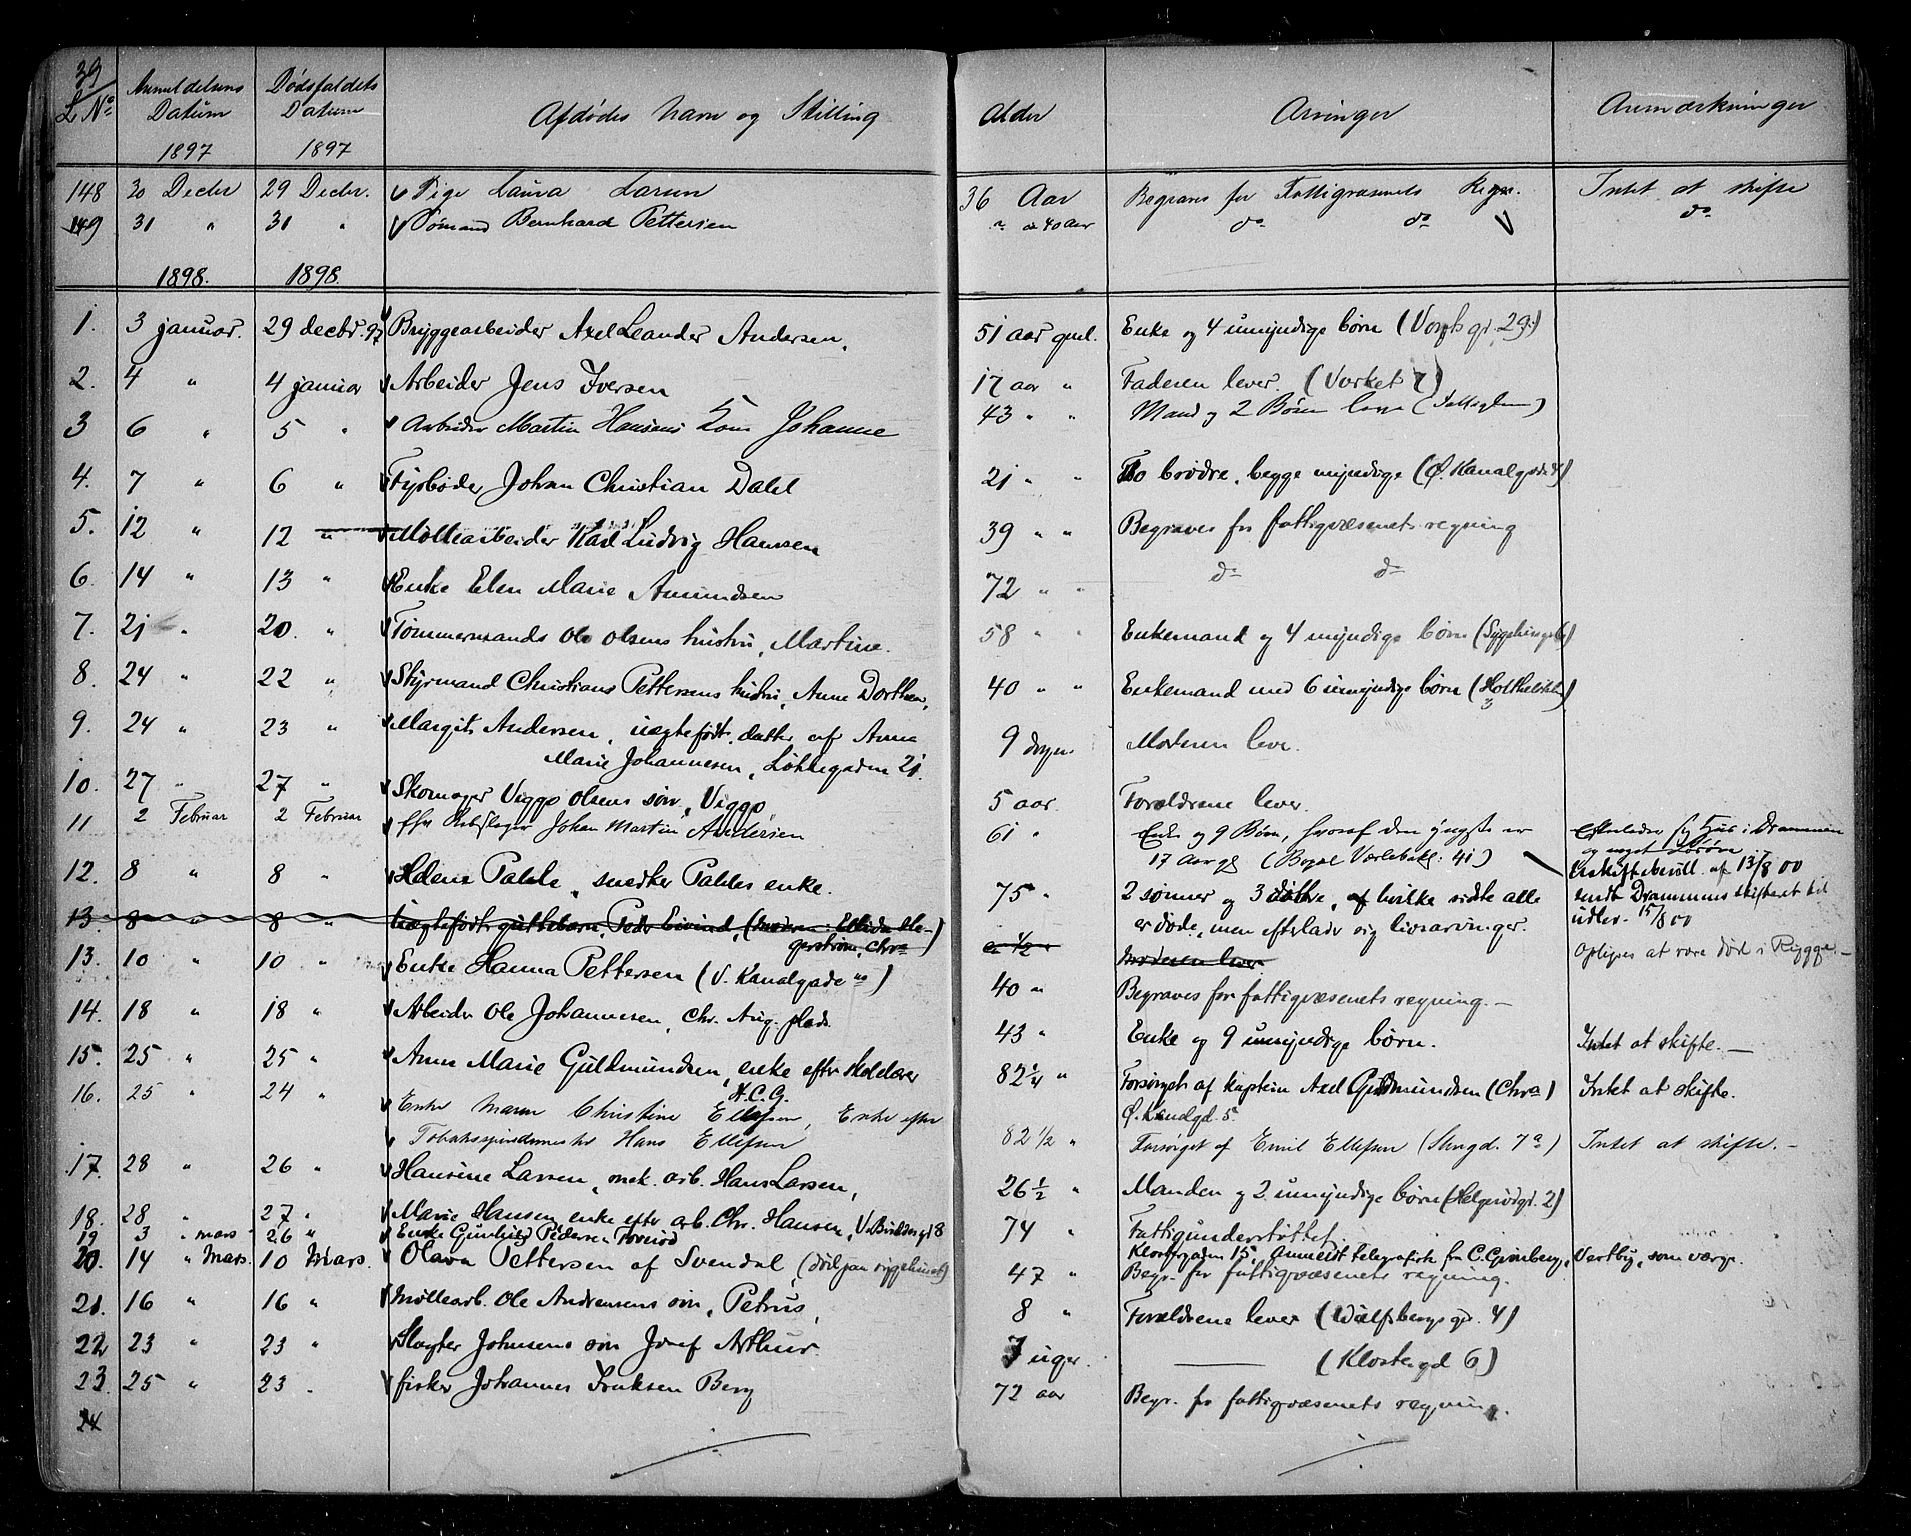 39
L. No. Anmeldelsens Datum 1897 Dødsfaldets Datum 1897 Afdødes Navn og Stilling Alder Arvinger Anmærkninger
148 30 Decbr 29 Decbr. Pige Laura Larsen 36 Aar Begraves for Fattigvæsenets Regn. Intet at skifte
149 31 " 31 " Sømand Bernhard Pettersen " ca 40 aar do do do
1898. 1898.
1. 3 januar. 29 decbr. 97 Bryggearbeider Axel Leander Andersen, 51 aar gml. Enke og 4 umyndige børn ( gd. 29.)
2. 4 " 4 januar Arbeider Jens Iversen 17 aar " Faderen lever. (Værket 7)
3 6 " 5 " Arbeider Martin Hansens Kone Johanne 43 " " Mand og 2 Børn leve
4. 7 " 6 " Fyrbøder Johan Christian Dahl 21 " " To brødre, begge myndige (Ø. Kanalgade 4)
5. 12 " 12 " Møllearbeider Karl Ludvig Hansen 39 " " Begraves for fattigvæsenets regning
6. 14 " 13 " Enke Elen Marie Amundsen 72 " " do do
7. 21 " 20. " Tømmermands Ole Olsens hustru, Martine. 58 " " Enkemand og 4 myndige børn
8. 24 " 22 " Styrmand Christians Pettersens hustru, Anne Dorthea, 40 " " Enkemand med 6 umyndige børn
9. 24 " 23 " Margit Andersen, uægtefødt datter af Anna 9 døgn. Moderen lever.
Marie Johannesen, Løkkegaden 21.
10. 27 " 27 " Skomager Viggo Olsens søn, Viggo 5 aar. Forældrene lever.
11 2 Februar 2 Februar Johan Martin Andersen 61 " Enke og 9 Børn, hvoraf den yngste er Efterlader sig Hus i Drammen
17 Aar gl. 41) og noget Løsøre
12. 8 " 8 " Helene Pahle, snedker Pahles enke. 75 " 2 sønner og 3 døttre, af hvilke sidste alle Uskiftebevill. af 13/8 00
er døde, men efterlader sig livsarvinger. sendt Drammens skifteret til
udlev. 15/8 00
13. 8 " 8 " Uægtefødt guttebarn Peder Eivind, (moderen Ellida Ha- a 1/2 a Moderen lever. Oplyses at være død i Rygge. —
gerstrøm, Chra)
13. 10 " 10 " Enke Hanna Pettersen (V. Kanalgade) 40 " Begraves for fattigvæsenets regning. —
14. 18 " 18 " Arbeider Ole Johannesen, Chr. Aug. plads. 43 " Enke og 9 umyndige børn. Intet at skifte. —
15. 25 " 25 " Anne Marie Guldmundsen, enke efter Skolelærer 82 1/4 " Forsørget af kaptein Axel Guldmundsen (Chra) Intet at skifte.
H. C. G. Ø. Kanalgd. 5.
16. 25 " 24 " Enke Maren Christine Ellefsen, Enke efter
Tobakspindermester Hans Ellefsen 82 1/2 " Forsørget af Emil Ellefsen (Stengd. 7a) Intet at skifte. —
17. 28 " 26 " Hansine Larsen, mek. arb. Hans Larsen, 26 1/2 " Manden og 2 umyndige børn (Helgerødgd. 2)
18. 28 " 27 " Marie Hansen, enke efter arb. Chr. Hansen, 74 " Fattigunderstøttet.
19 3 " mars 26 " Enke Gunhild Pedersen Klostergaden 15, Anmeldt telegrafisk fra C. Grønberg, Vestby, som værge.
20. 14 " Mars. 10 Mars. Olava Pettersen af Svendal, 47 " Begr. for fattigvæsenets regning.
21. 16 " 16 " Møllearb. Ole Andreasens søn, Petrus, 8 " Forældrene lever (Wulfsbergs gd. 4)
22 23 " 23 " Slagter Johnsens søn Josef Arthur. 7 uger. — (Klostergd 6)
23. 25 " 23 " fisker Johannes Isaksen Berg 72 aar Begr. for fattigvæsenets regning.
24